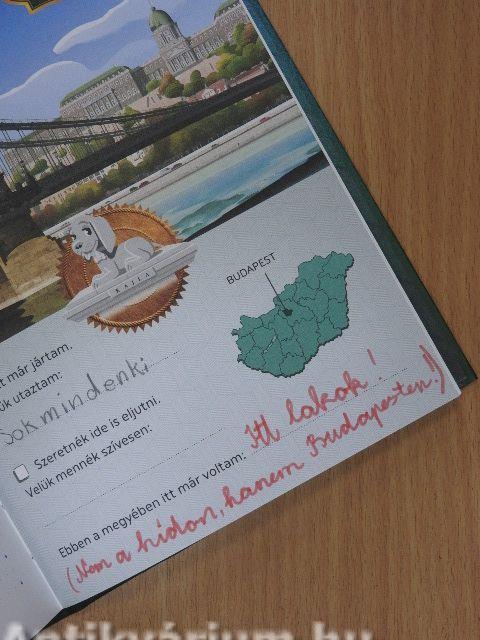 KAJLA
BUDAPEST
t már jártam.
ük utaztam:
Sok mindenki
Szeretnék ide is eljutni.
Velük mennék szívesen:
Ebben a megyében itt már voltam: Itt lakok!
(Nem a hídon, hanem Budapesten!)
Antikvárium.hu